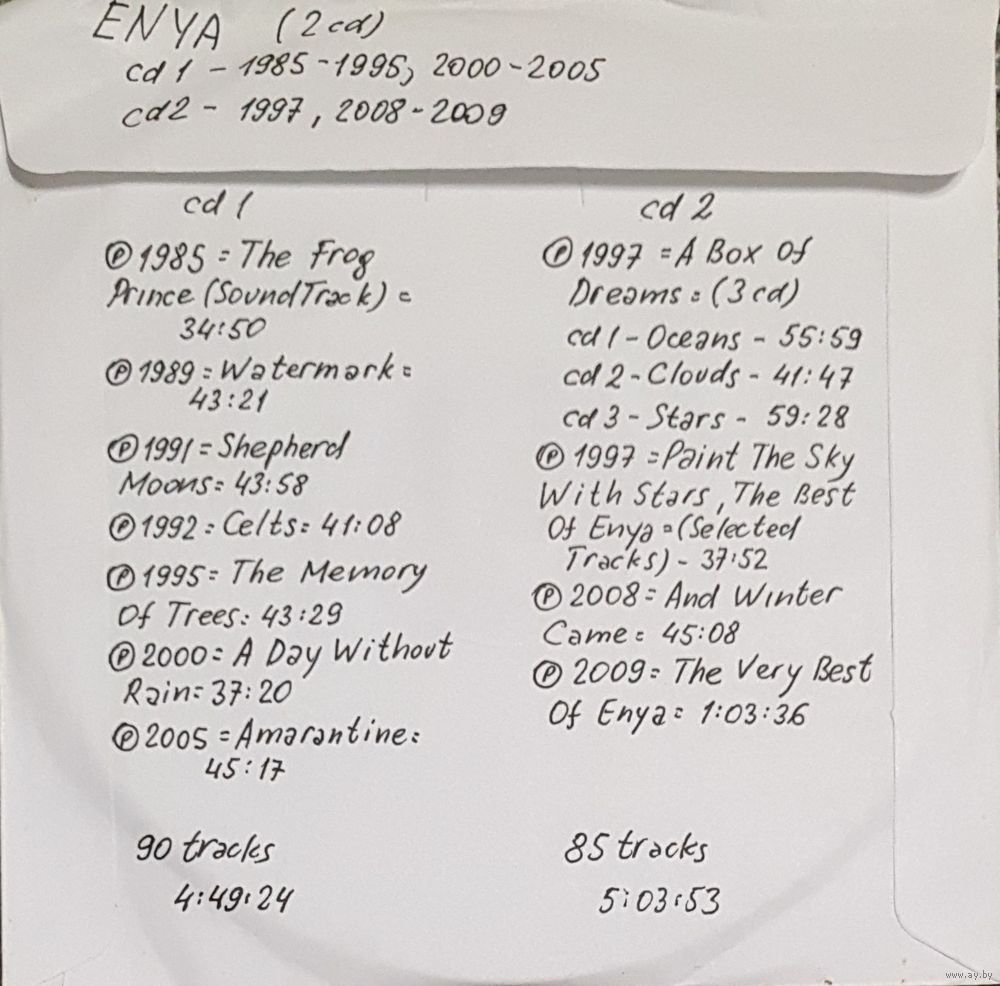 ENYA (2cd)
cd 1 - 1985-1995, 2000-2005
cd2 - 1997, 2008-2009
cd 1
Ⓟ1985 = The Frog
Prince (SoundTrack) =
34:50
Ⓟ1989 = Watermark =
43:21
Ⓟ1991 = Shepherd
Moons = 43:58
Ⓟ1992 = Celts = 41:08
Ⓟ1995 = The Memory
Of Trees = 43:29
Ⓟ2000 = A Day Without
Rain = 37:20
Ⓟ2005 = Amarantine =
45:17
90 tracks
4:49:24
cd 2
Ⓟ1997 = A Box Of
Dreams = (3cd)
cd 1 - Oceans - 55:59
cd 2 - Clouds - 41:47
cd 3 - Stars - 59:28
Ⓟ 1997 = Paint The Sky
With Stars, The Best
Of Enya = (Selected
Tracks) - 37:52
Ⓟ 2008 = And Winter
Came = 45:08
Ⓟ 2009 = The Very Best
Of Enya = 1:03:36
85 tracks
5:03:53
www.ay.by